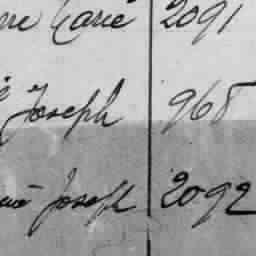 Carie 2091
Joseph 968
Joseph 2092